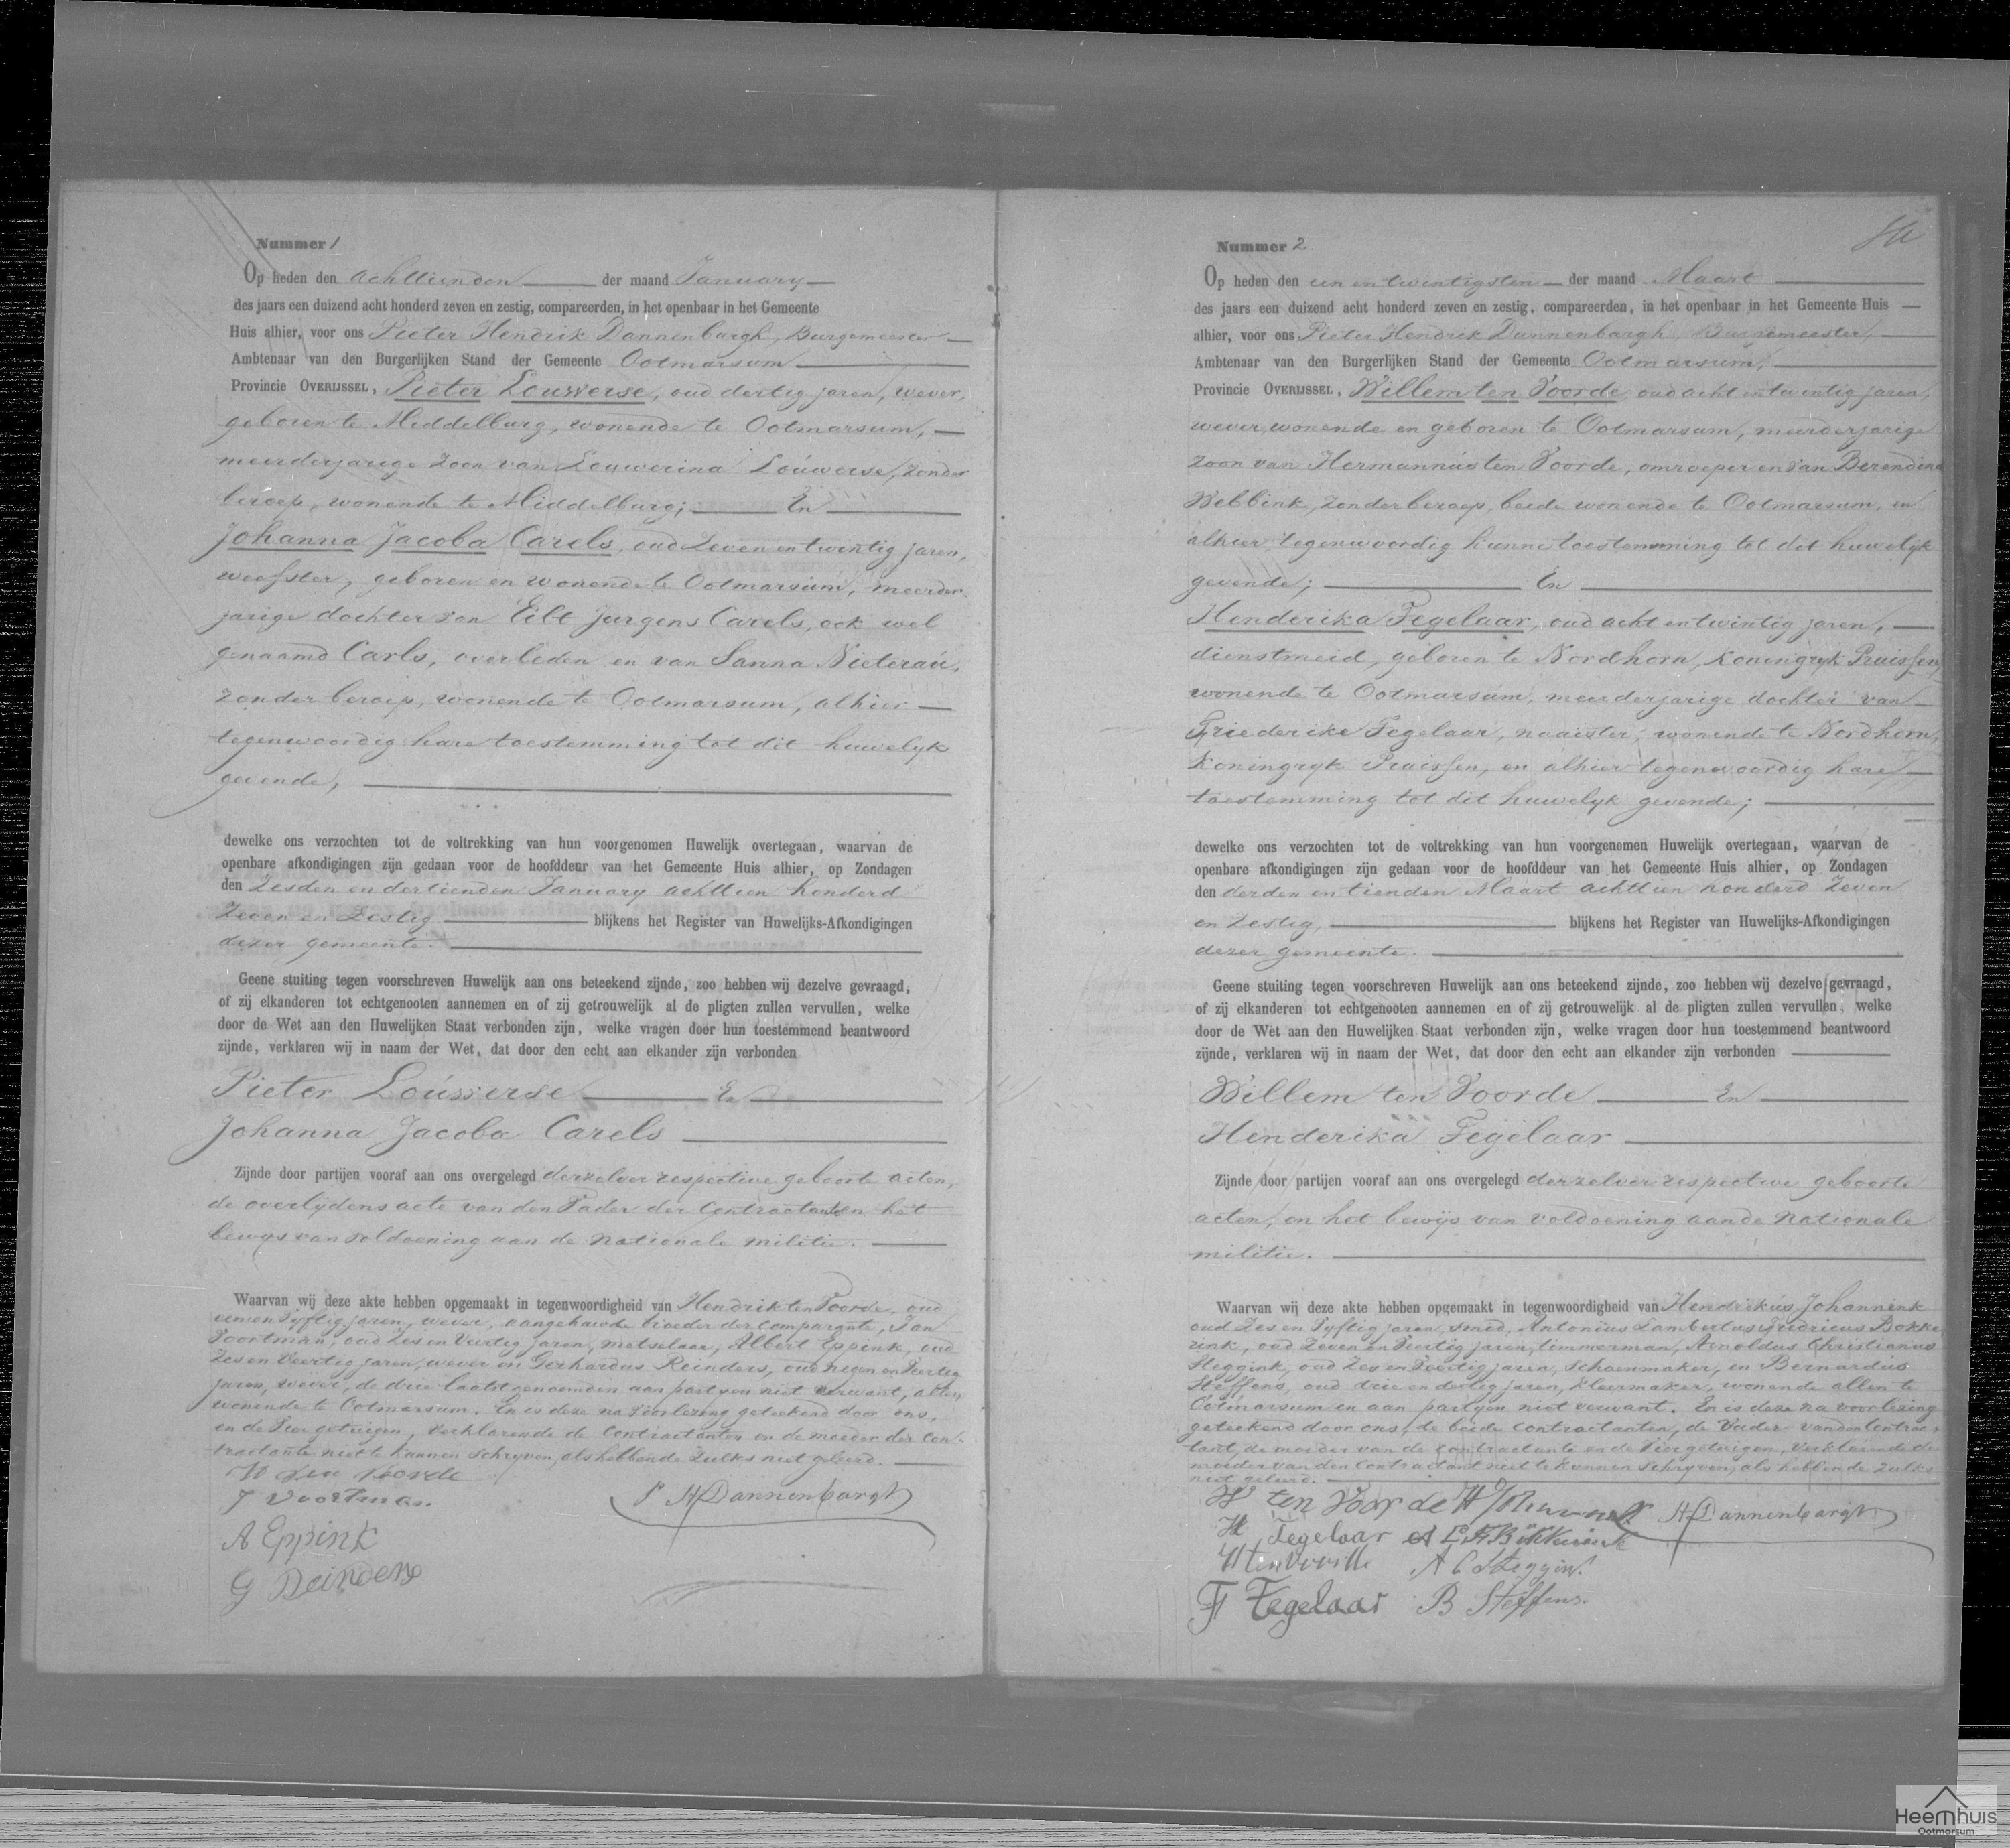 Nummer 1
Op heden den achttienden der maand January
des jaars een duizend acht honderd zeven en zestig, compareerden, in het openbaar in het Gemeente
Huis alhier, voor ons Pieter Hendrik Dannenbargh, Burgemeester
Ambtenaar van den Burgerlijken Stand der Gemeente Ootmarsum
Provincie OVERIJSSEL, Pieter Louwerse, oud dertig jaren, wever,
geboren te Middelburg, wonende te Ootmarsum,
meerderjarige zoon van Louwerina Louwerse, zonder
beroep, wonende te Middelburg; En
Johanna Jacoba Carels, oud zeven en twintig jaren,
weefster, geboren en wonende te Ootmarsum, meerder
jarige dochter van Eilt Jurgens Carels, ook wel
genaamd Carls, overleden en van Sanna Nieterau,
zonder beroep, wonende te Ootmarsum, alhier
tegenwoordig hare toestemming tot dit huwelyk
gevende,
dewelke ons verzochten tot de voltrekking van hun voorgenomen Huwelijk overtegaan, waarvan de
openbare afkondigingen zijn gedaan voor de hoofddeur van het Gemeente Huis alhier, op Zondagen
den Zesden en dertienden January achttien honderd
Zeven en Zestig blijkens het Register van Huwelijks-Afkondigingen
dezer gemeente.
Geene stuiting tegen voorschreven Huwelijk aan ons beteekend zijnde, zoo hebben wij dezelve gevraagd,
of zij elkanderen tot echtgenooten aannemen en of zij getrouwelijk al de pligten zullen vervullen, welke
door de Wet aan den Huwelijken Staat verbonden zijn, welke vragen door hun toestemmend beantwoord
zijnde, verklaren wij in naam der Wet, dat door den echt aan elkander zijn verbonden
Pieter Louwerse En
Johanna Jacoba Carels
Zijnde door partijen vooraf aan ons overgelegd derzelver respective geboorte acten,
de overlijdens acte van den Vader der Contractante en het
bewys van voldoening aan de nationale militie.
Waarvan wij deze akte hebben opgemaakt in tegenwoordigheid van Hendrik ten Voorde, oud
een en Vyftig jaren, wever, aangehuwde broeder der comparante, Jan
Voortman, oud Zes en Veertig jaren, metselaar, Albert Eppink, oud
Zes en Veertig jaren, wever en Gerhardus Reinders, oud negen en Veertig
jaren, wever, de drie laatstgenoemden aan partyen niet verwant, allen
wonende te Ootmarsum. En is deze na voorlezing geteekend door ons,
en de Vier getuigen, verklarende de Contractanten en de moeder der Con-
tractante niet te kunnen schryven, als hebbende zulks niet geleerd.
H ten Voorde
J Voortman
P H Dannenbargh
A Eppink
G Reinders
Nummer 2.
Op heden den een en twintigsten der maand Maart
des jaars een duizend acht honderd zeven en zestig, compareerden, in het openbaar in het Gemeente Huis
alhier, voor ons Pieter Hendrik Dannenbargh, Burgemeester,
Ambtenaar van den Burgerlijken Stand der Gemeente Ootmarsum,
Provincie OVERIJSSEL, Willem ten Voorde, oud acht en twintig jaren,
wever, wonende en geboren te Ootmarsum, meerderjarige
zoon van Hermannus ten Voorde, omroeper en van Berendina
Webbink, zonder beroep, beide wonende te Ootmarsum, en
alhier tegenwoordig hunne toestemming tot dit huwelyk
gevende; En
Henderika Tegelaar, oud acht en twintig jaren,
dienstmeid, geboren te Nordhorn, Koningryk Pruissen,
wonende te Ootmarsum, meerderjarige dochter van
Friederike Tegelaar, naaister, wonende te Nordhorn,
Koningryk Pruissen, en alhier tegenwoordig hare
toestemming tot dit huwelyk gevende;
dewelke ons verzochten tot de voltrekking van hun voorgenomen Huwelijk overtegaan, waarvan de
openbare afkondigingen zijn gedaan voor de hoofddeur van het Gemeente Huis alhier, op Zondagen
den derden en tienden Maart achttien honderd Zeven
en Zestig, blijkens het Register van Huwelijks-Afkondigingen
dezer gemeente.
Geene stuiting tegen voorschreven Huwelijk aan ons beteekend zijnde, zoo hebben wij dezelve gevraagd,
of zij elkanderen tot echtgenooten aannemen en of zij getrouwelijk al de pligten zullen vervullen, welke
door de Wet aan den Huwelijken Staat verbonden zijn, welke vragen door hun toestemmend beantwoord
zijnde, verklaren wij in naam der Wet, dat door den echt aan elkander zijn verbonden
Willem ten Voorde En
Henderika Tegelaar
Zijnde door partijen vooraf aan ons overgelegd derzelver respective geboorte
acten, en het bewijs van voldoening aan de nationale
militie.
Waarvan wij deze akte hebben opgemaakt in tegenwoordigheid van Hendrikus Johannink
oud Zes en Vyftig jaren, smid, Antonius Lambertus Fredricus Bökke
rink, oud Zeven en Veertig jaren, timmerman, Arnoldus Christianus
Steggink, oud Zes en Veertig jaren, Schoenmaker, en Bernardus
Steffens, oud drie en dertig jaren, kleermaker, wonende allen te
Ootmarsum en aan partyen niet verwant. En is deze na voorlezing
geteekend door ons, de beide contractanten, de Vader van den Contrac
tant, de moeder van de contractante en de Vier getuigen, verklarende de
moeder van den Contractant niet te kunnen Schryven, als hebbende zulks
niet geleerd.
W ten Voorde
H Tegelaar
H ten Voorde
F Tegelaar
A C Steggink
B Steffens
P H Dannenbargh
Heemhuis
Ootmarsum